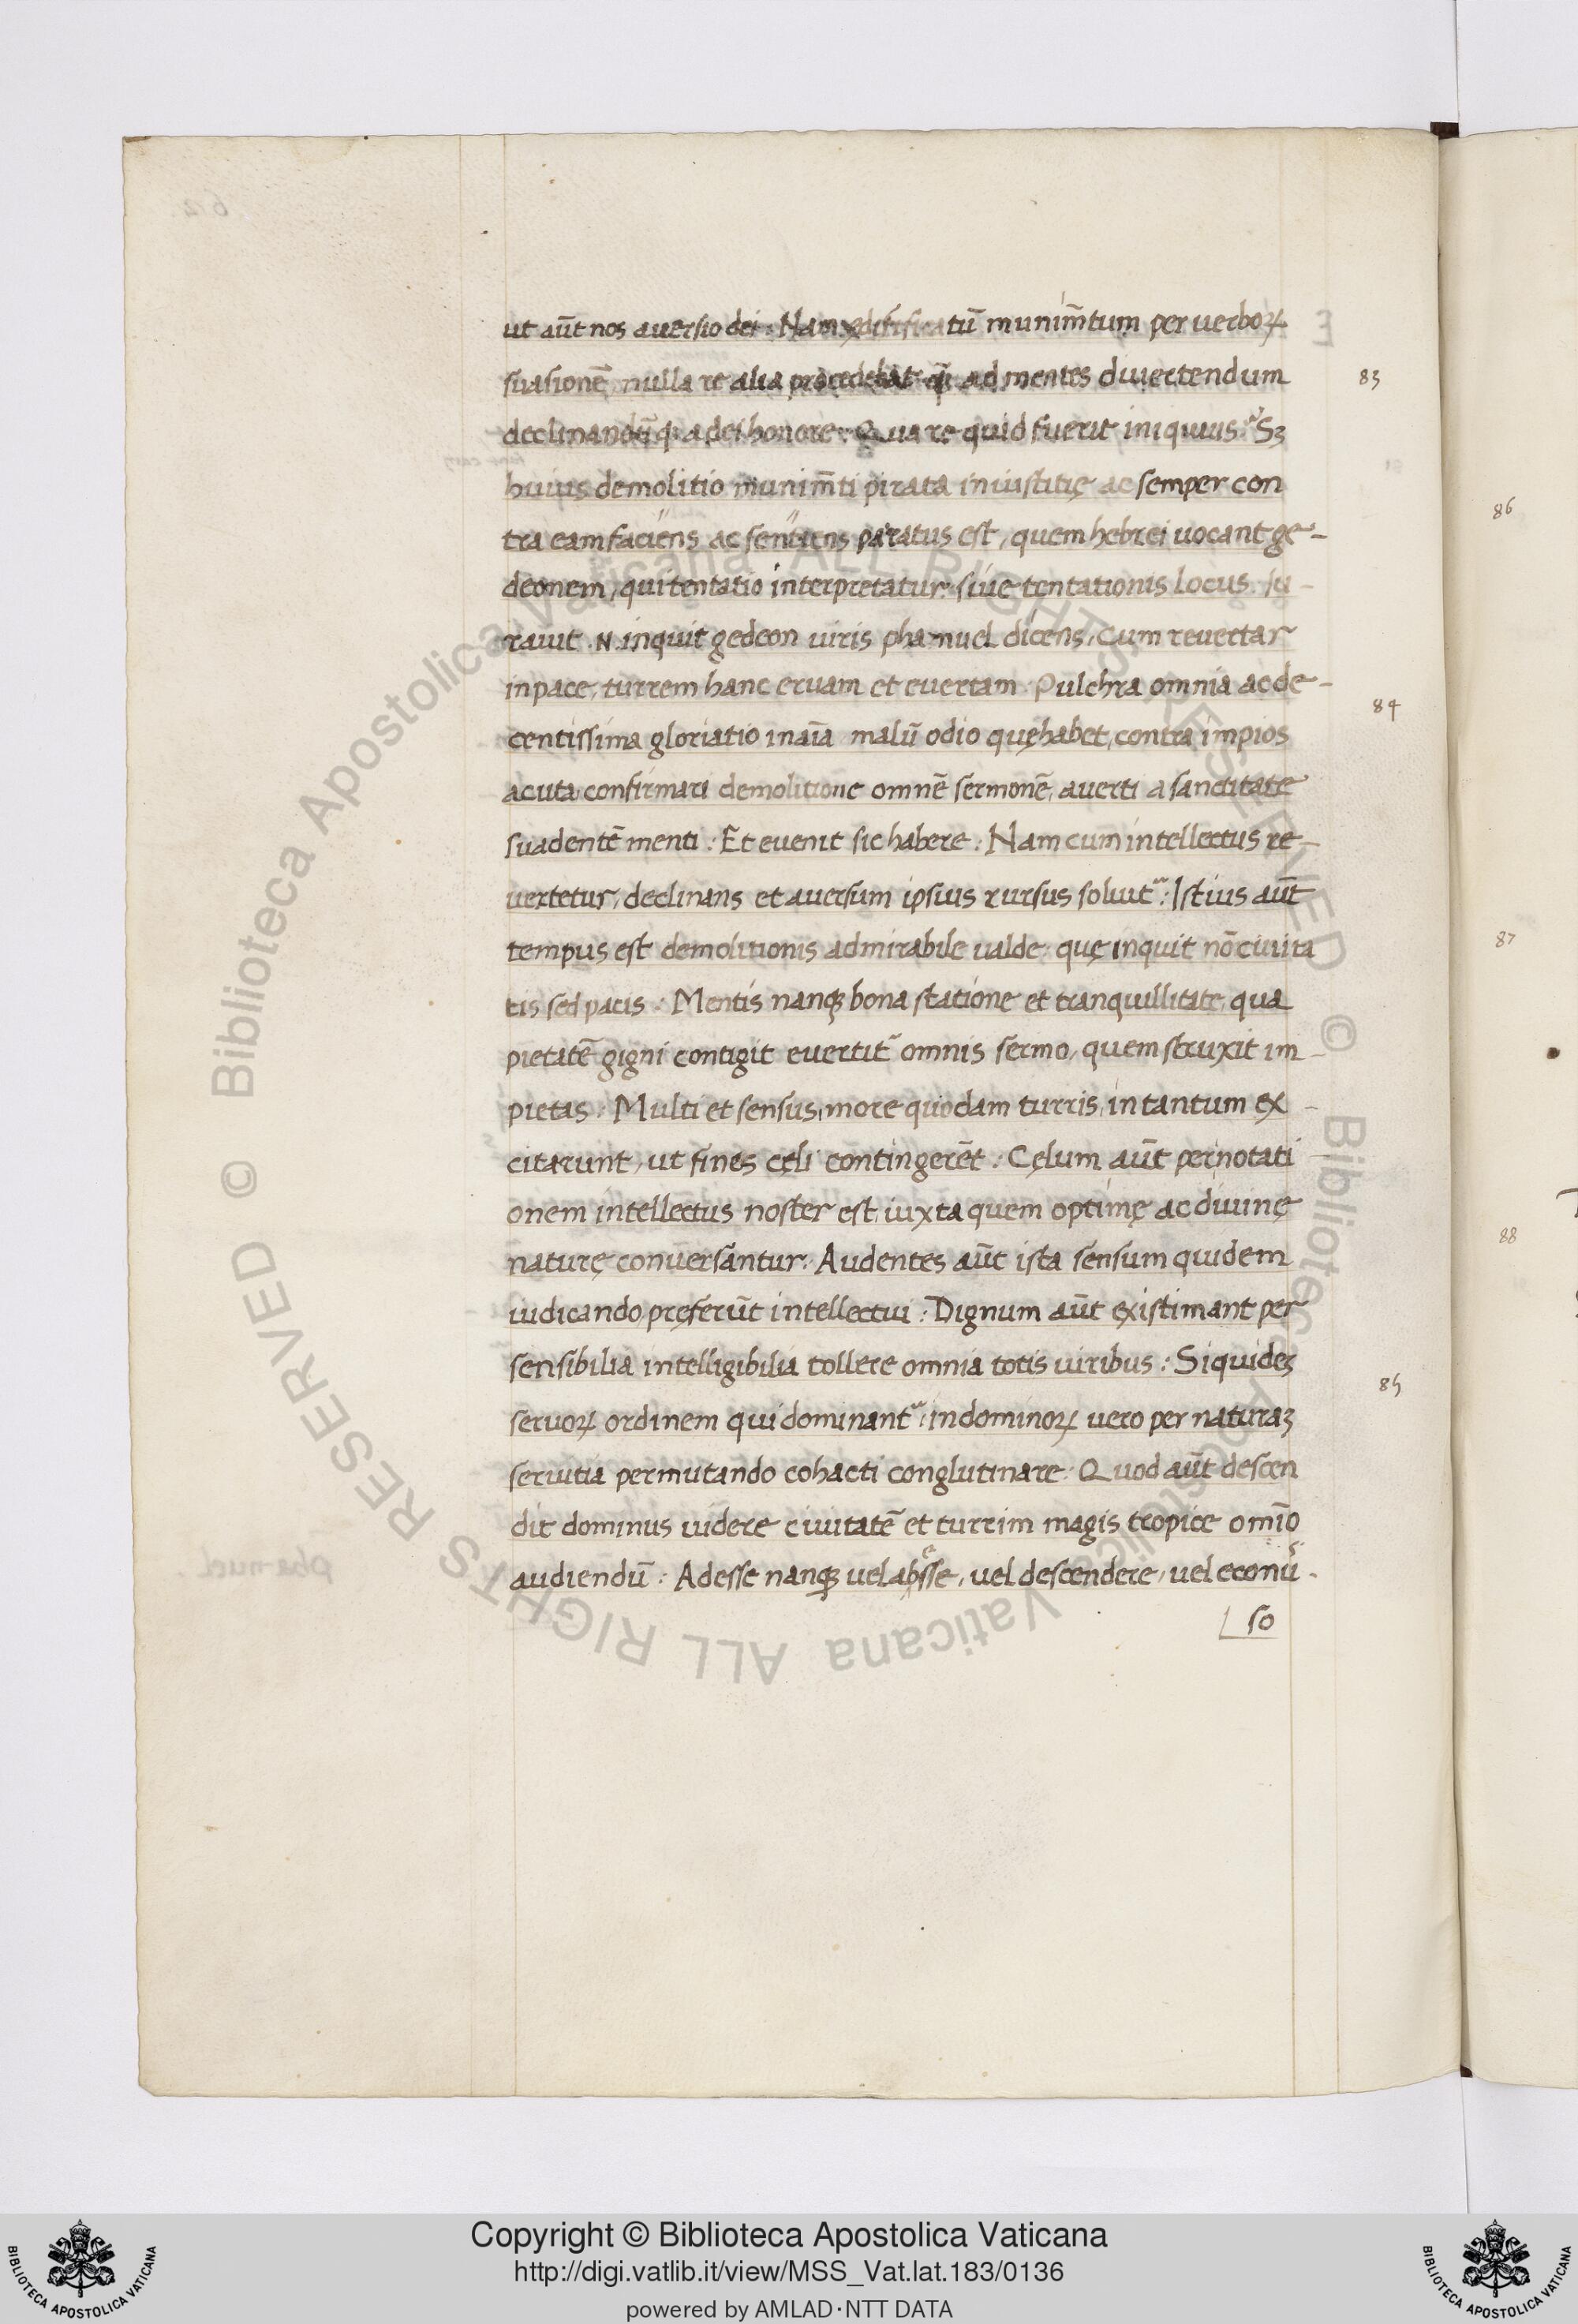 ut aūt nos auersio dei : Nam ędificatū munim̄tum per uerboꝝ
suasionē nulla re alia procedebat ad mentes diuertendum
declinandū a dei honore : Qua re quid fuerit iniquius : Sꝫ
huius demolitio munim̄ti pirata iniustitię ac semper con
tra eam faciens ac sentiens paratus est, quem hebrei uocant ge-
deonem, qui tentatio interpretatur siue tentationis locus. Iu-
rauit .N. inquit gedeon uiris phanuel dicens, Cum reuertar
in pace, turrem hanc eruam et euertam. Pulchra omnia ac de-
centissima gloriatio in aīa malū odio quę habet, contra impios
acuta confirmari demolitione omnē sermonē, auerti a sanctitate
suadentē menti : Et euenit sic habere : Nam cum intellectus re-
uertetur, declinans et auersum ipsius rursus soluit᷑ : Istius aūt
tempus est demolitionis admirabile ualde quę inquit nō ciuita
tis sed pacis : Mentis nanqꝫ bona statione et tranquillitate, qua
pietatē gigni contigit euertit᷑ omnis sermo, quem struxit im-
pietas : Multi et sensus, more quodam turris, in tantum ex-
citarunt, ut fines cęli contingerēt : Cęlum aūt per notati
onem intellectus noster est, iuxta quem optimę ac diuinę
naturę conuersantur : Audentes aūt ista sensum quidem
iudicando pręferūt intellectui : Dignum aūt existimant per
sensibilia intelligibilia tollere omnia totis uiribus : Siquideꝫ
seruoꝝ ordinem qui dominant᷑, in dominoꝝ uero per naturaꝫ
seruitia permutando cohacti conglutinare : Quod aūt descen
dit dominus uidere ciuitatē et turrim magis tropice omīo
audiendū : Adesse nanqꝫ uel abesse, uel descendere, uel econū
so
83
84
85
86
87
88
Copyright © Biblioteca Apostolica Vaticana
http://digi.vatlib.it/view/MSS_Vat.lat.183/0136
powered by AMLAD·NTT DATA
BIBLIOTECA APOSTOLICA VATICANA
BIBLIOTECA APOSTOLICA VATICANA
© Biblioteca Apostolica Vaticana ALL RIGHTS RESERVED © Biblioteca Apostolica Vaticana ALL RIGHTS RESERVED